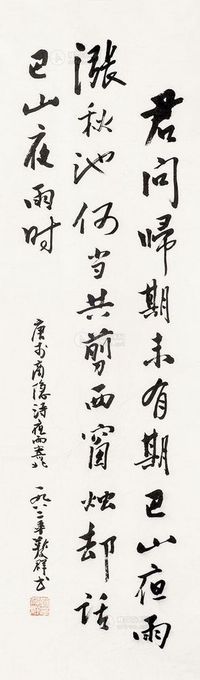 君问歸期未有期巴山夜雨
漲秋池何当共剪西窗烛却话
巴山夜雨时
唐李商隐诗夜雨寄北
一九八二年